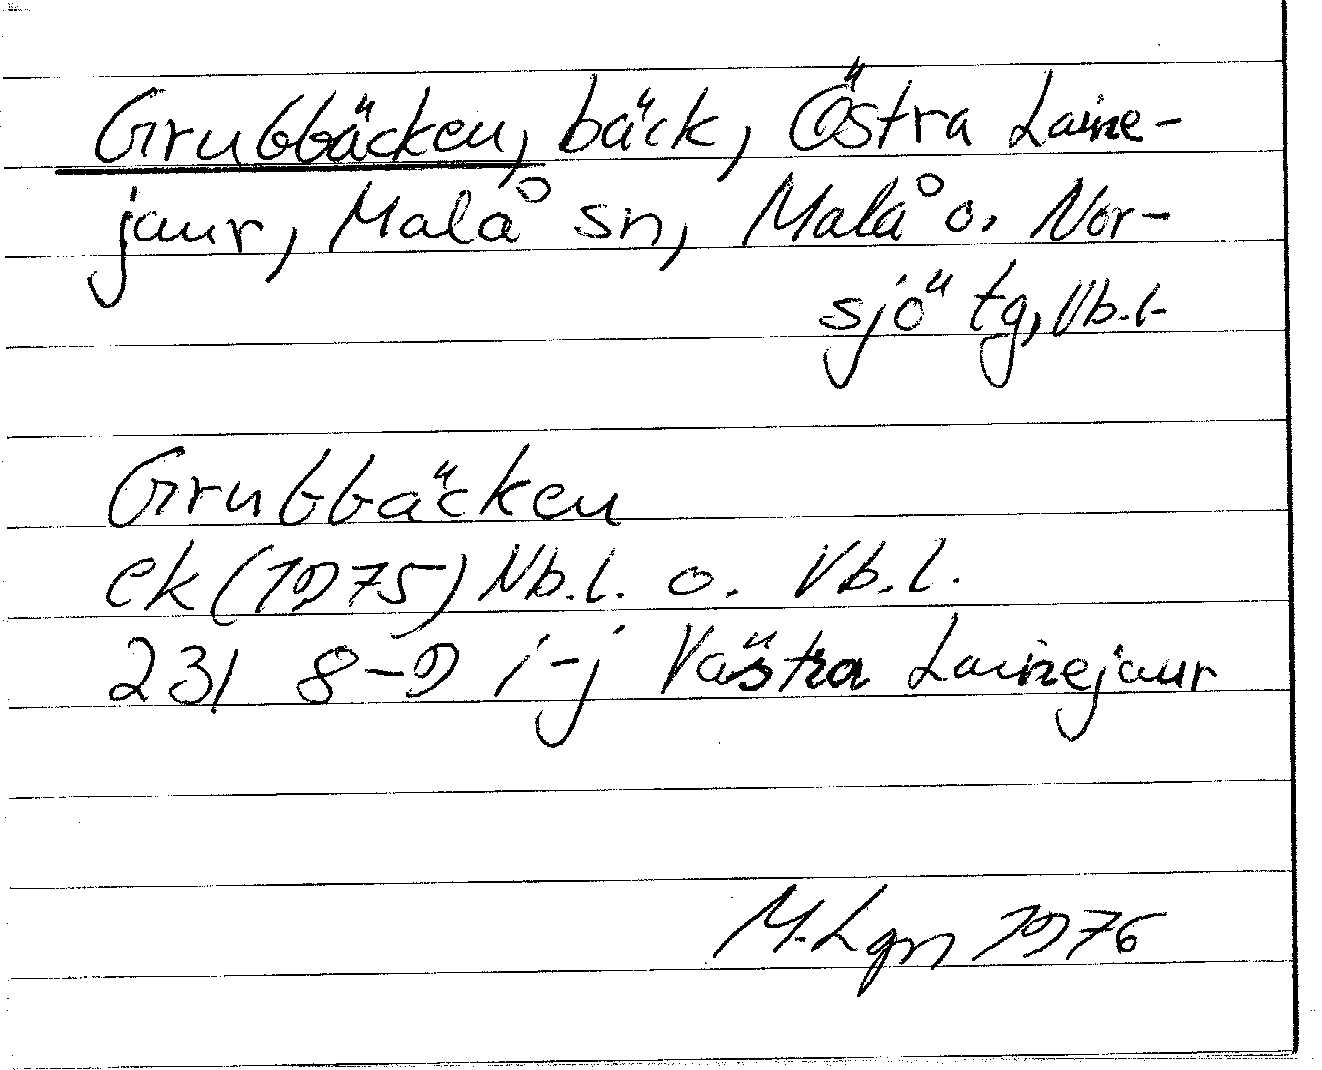 Grubbäcken, bäck, Östra Laine-
jaur, Malå sn, Malå o. Nor-
sjö tg, Vb.l.
Grubbäcken
ek (1975) Nb.l. o. Vb.l.
23I 8-9 i-j Västra Lainejaur
M. Lgn 1976